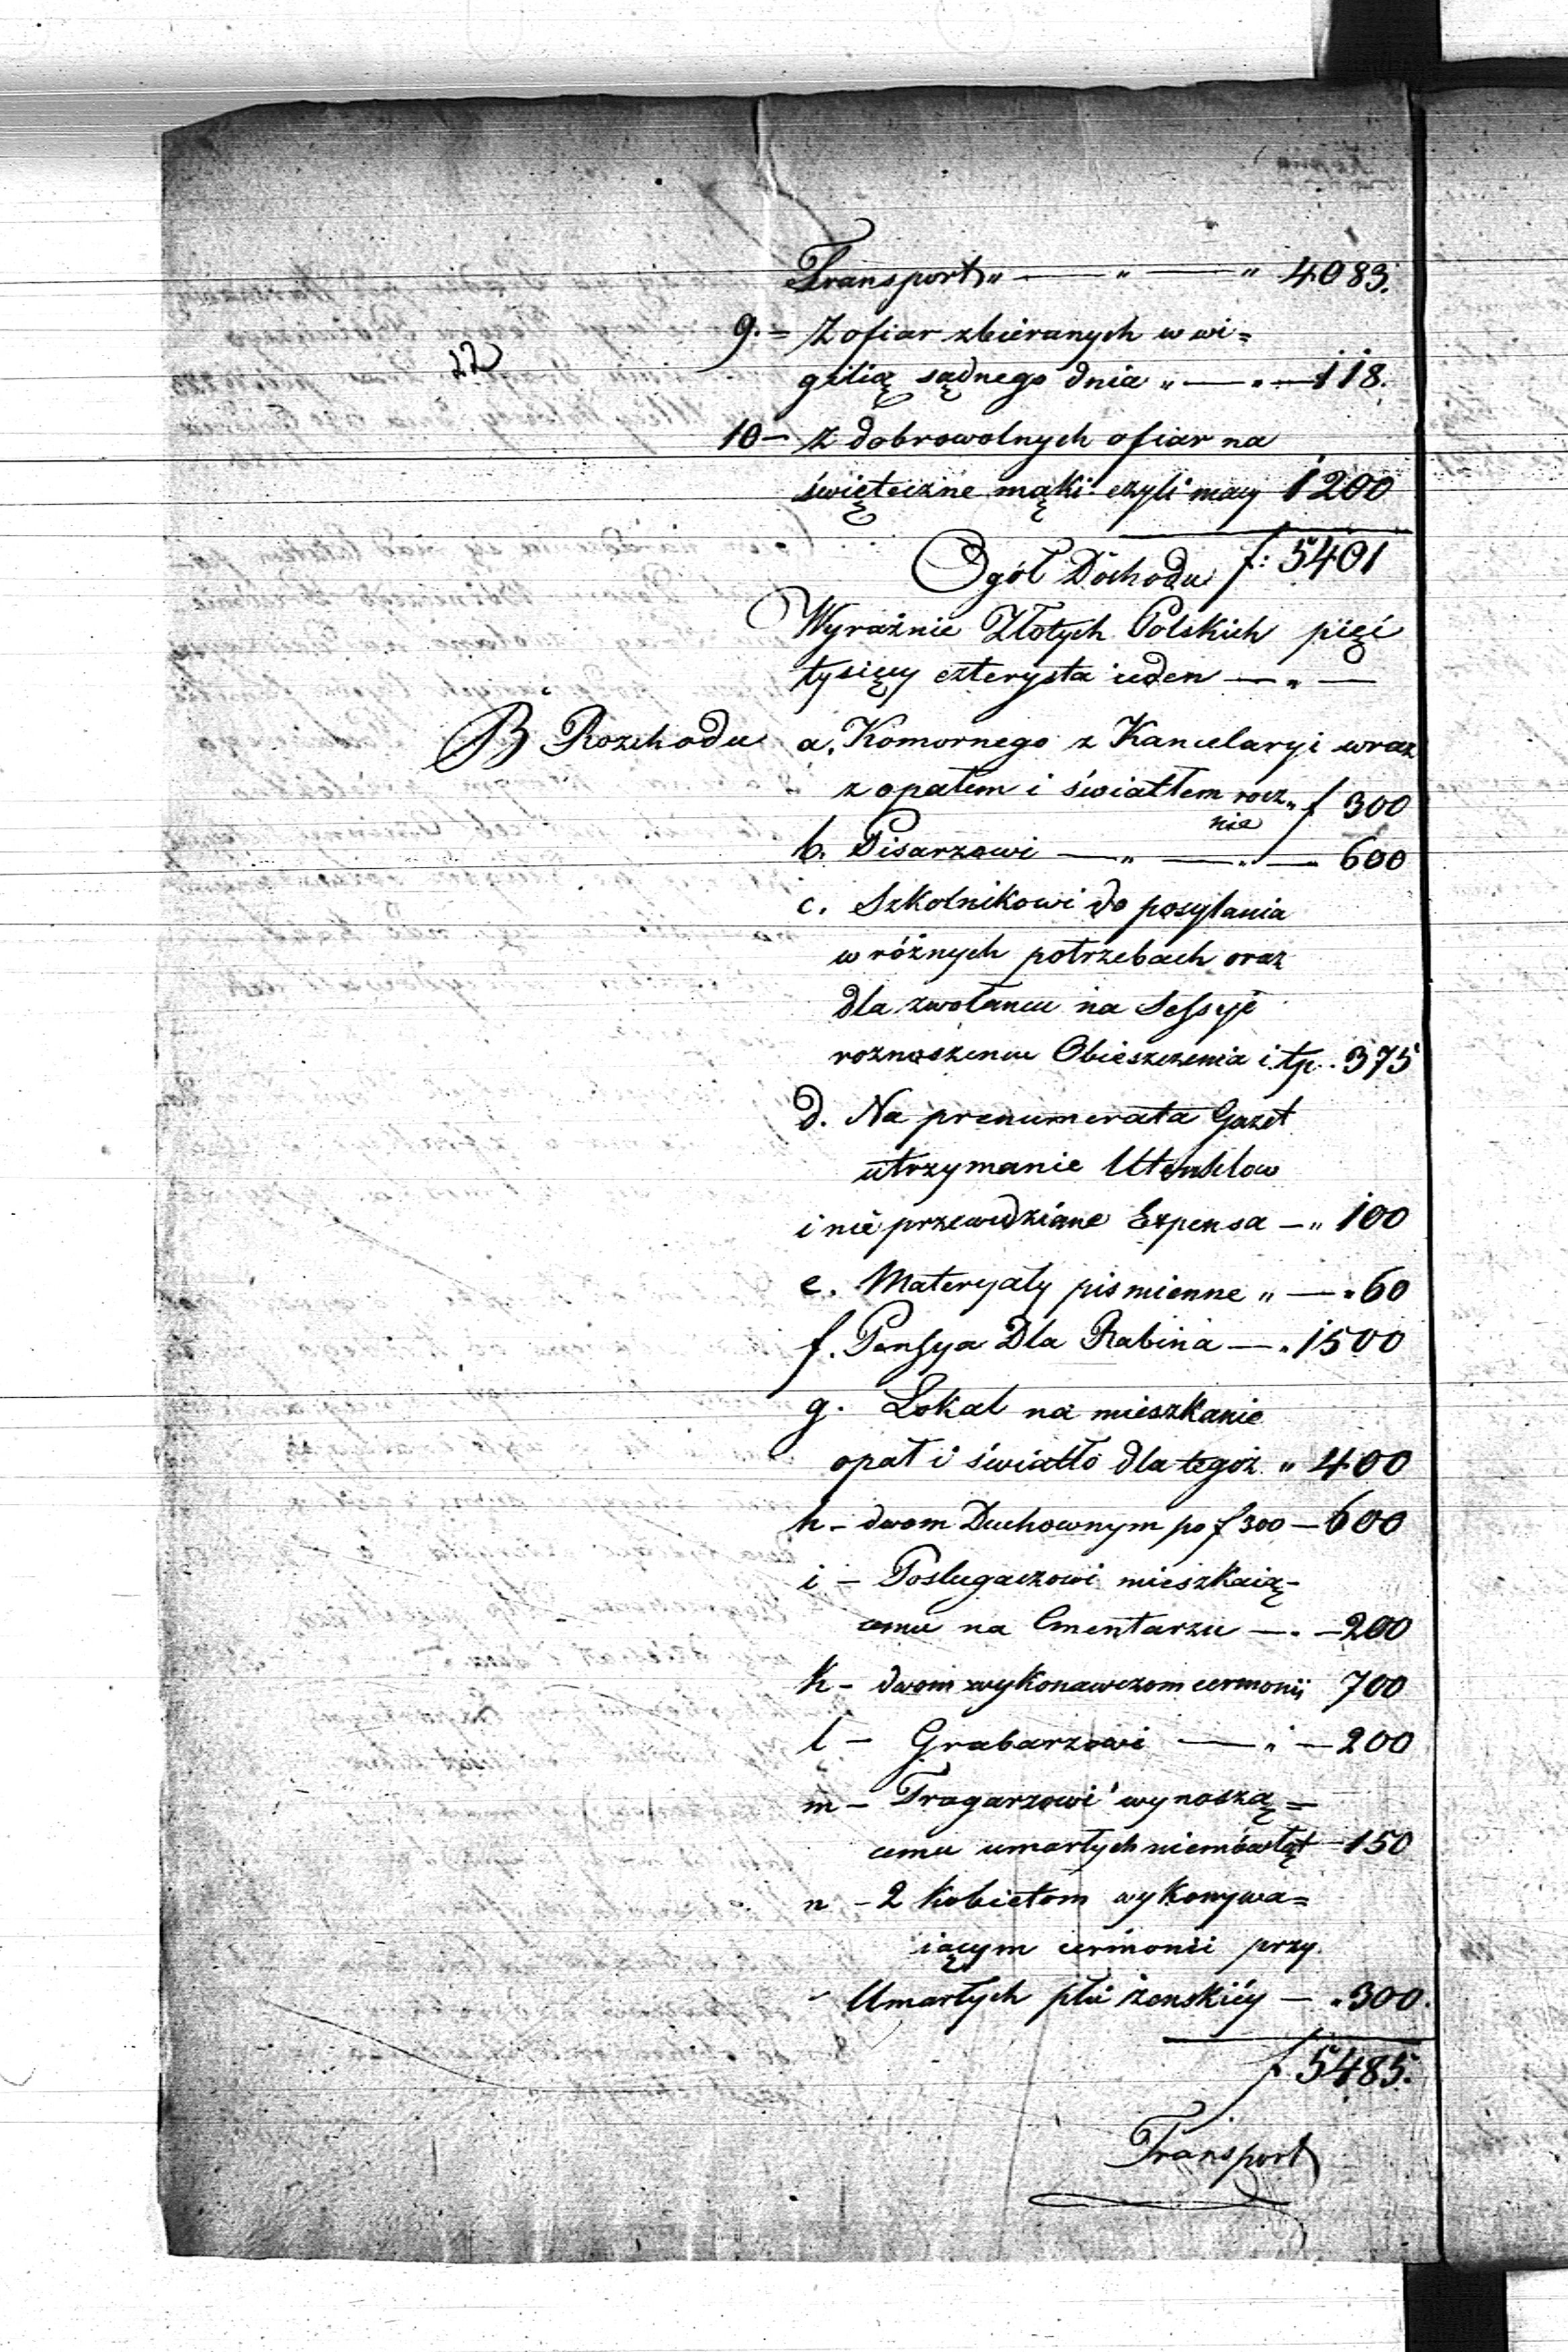 Transport „ — „ — „ 4083.
9. = Z ofiar zbieranych w wi=
gilią sądnego dnia „ — „ — 118.
22
10 — Z dobrowolnych ofiar na
święteczne mąki czyli macy 1200
Ogół Dochodu f: 5401
Wyraźnie Złotych Polskich pięć
tysięcy czterysta ieden — „ —
B Rozchodu a. Komornego z Kancelaryi wraz
z opałem i światłem rocz„ f 300
nie
b. Pisarzowi — „ — „ — 600
c. Szkolnikowi do posyłania
w różnych potrzebach oraz
dla zwołaniu na Sessyie
roznoszeniu Obieszczenia i. tp. 375
d. Na prenumerata Gazet
utrzymanie Utensilow
i nie przewidziane Expensa — „ 100
e. Materyały pismienne „ — „ 60
f. Pensya Dla Rabina — „ 1500
g. Lokal na mieszkanie
opał i światło dla tegoż „ 400
h — dwom Duchownym po f 300 — 600
i — Posługaczowi mieszkaią-
cemu na Cmentarzu — „ — 200
k — dwom wykonawczom cermonii 700
l — Grabarzowi — „ — 200
m — Tragarzowi wynoszą=
cemu umarłych niemówląt — 150
n — 2 Kobietom wykonywa=
iącym cermonii przy
Umarłych płci żenskiey — „ 300.
f. 5485.
Transport